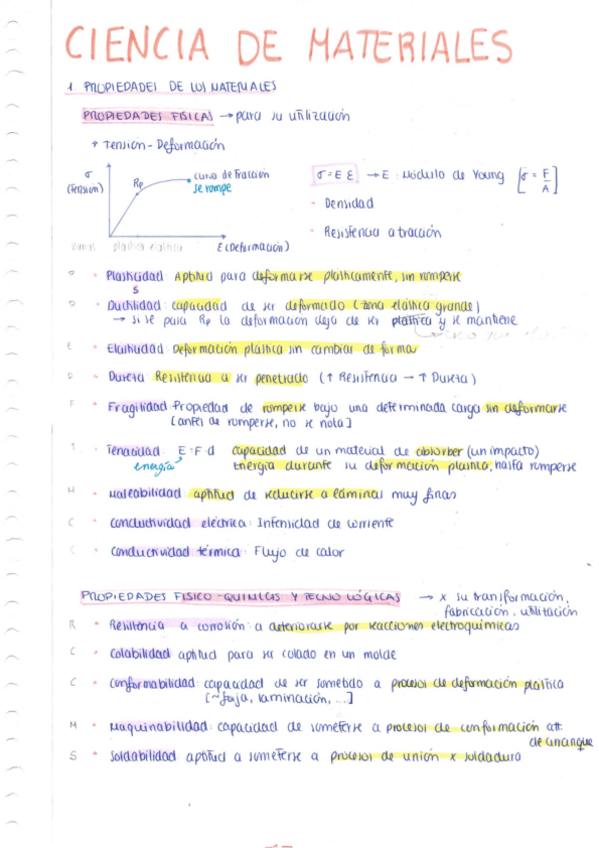 CIENCIA DE MATERIALES
1 PROPIEDADES DE LOS MATERIALES
PROPIEDADES FISICAS → para su utilización
* Tensión - Deformación
σ
(Tensión)
Rp
curva de Tracción
se rompe
zonas plástica elástica E (Deformación)
σ = E ε → E: Módulo de Young [σ = F/A]
- Densidad
- Resistencia a tracción
P • Plasticidad Aptitud para deformarse plásticamente, sin romperse
S
D • Ductilidad: capacidad de ser deformado (zona elástica grande)
→ si se pasa Rp la deformación deja de ser plástica y se mantiene
E • Elasticidad Deformación plástica sin cambiar de forma
D • Dureza Resistencia a ser penetrado (↑ Resistencia → ↑ Dureza)
F • Fragilidad Propiedad de romperse bajo una determinada carga sin deformarse
[antes de romperse, no se nota]
T • Tenacidad: E=F·d capacidad de un material de absorber (un impacto)
energía Energía durante su deformación plástica, hasta romperse
M • Maleabilidad: aptitud de reducirse a láminas muy finas
C • Conductividad eléctrica: Intensidad de corriente
C • Conductividad térmica: Flujo de calor
PROPIEDADES FISICO-QUIMICAS Y TECNOLÓGICAS → x su transformación,
fabricación, utilización
R • Resistencia a corrosión: a deteriorarse por reacciones electroquímicas
C • Colabilidad aptitud para ser colado en un molde
C • Conformabilidad: capacidad de ser sometido a procesos de deformación plástica
[~forja, laminación, ...]
M • Maquinabilidad: capacidad de someterse a procesos de conformación att.
de arranque
S • Soldabilidad aptitud a someterse a procesos de unión x soldadura